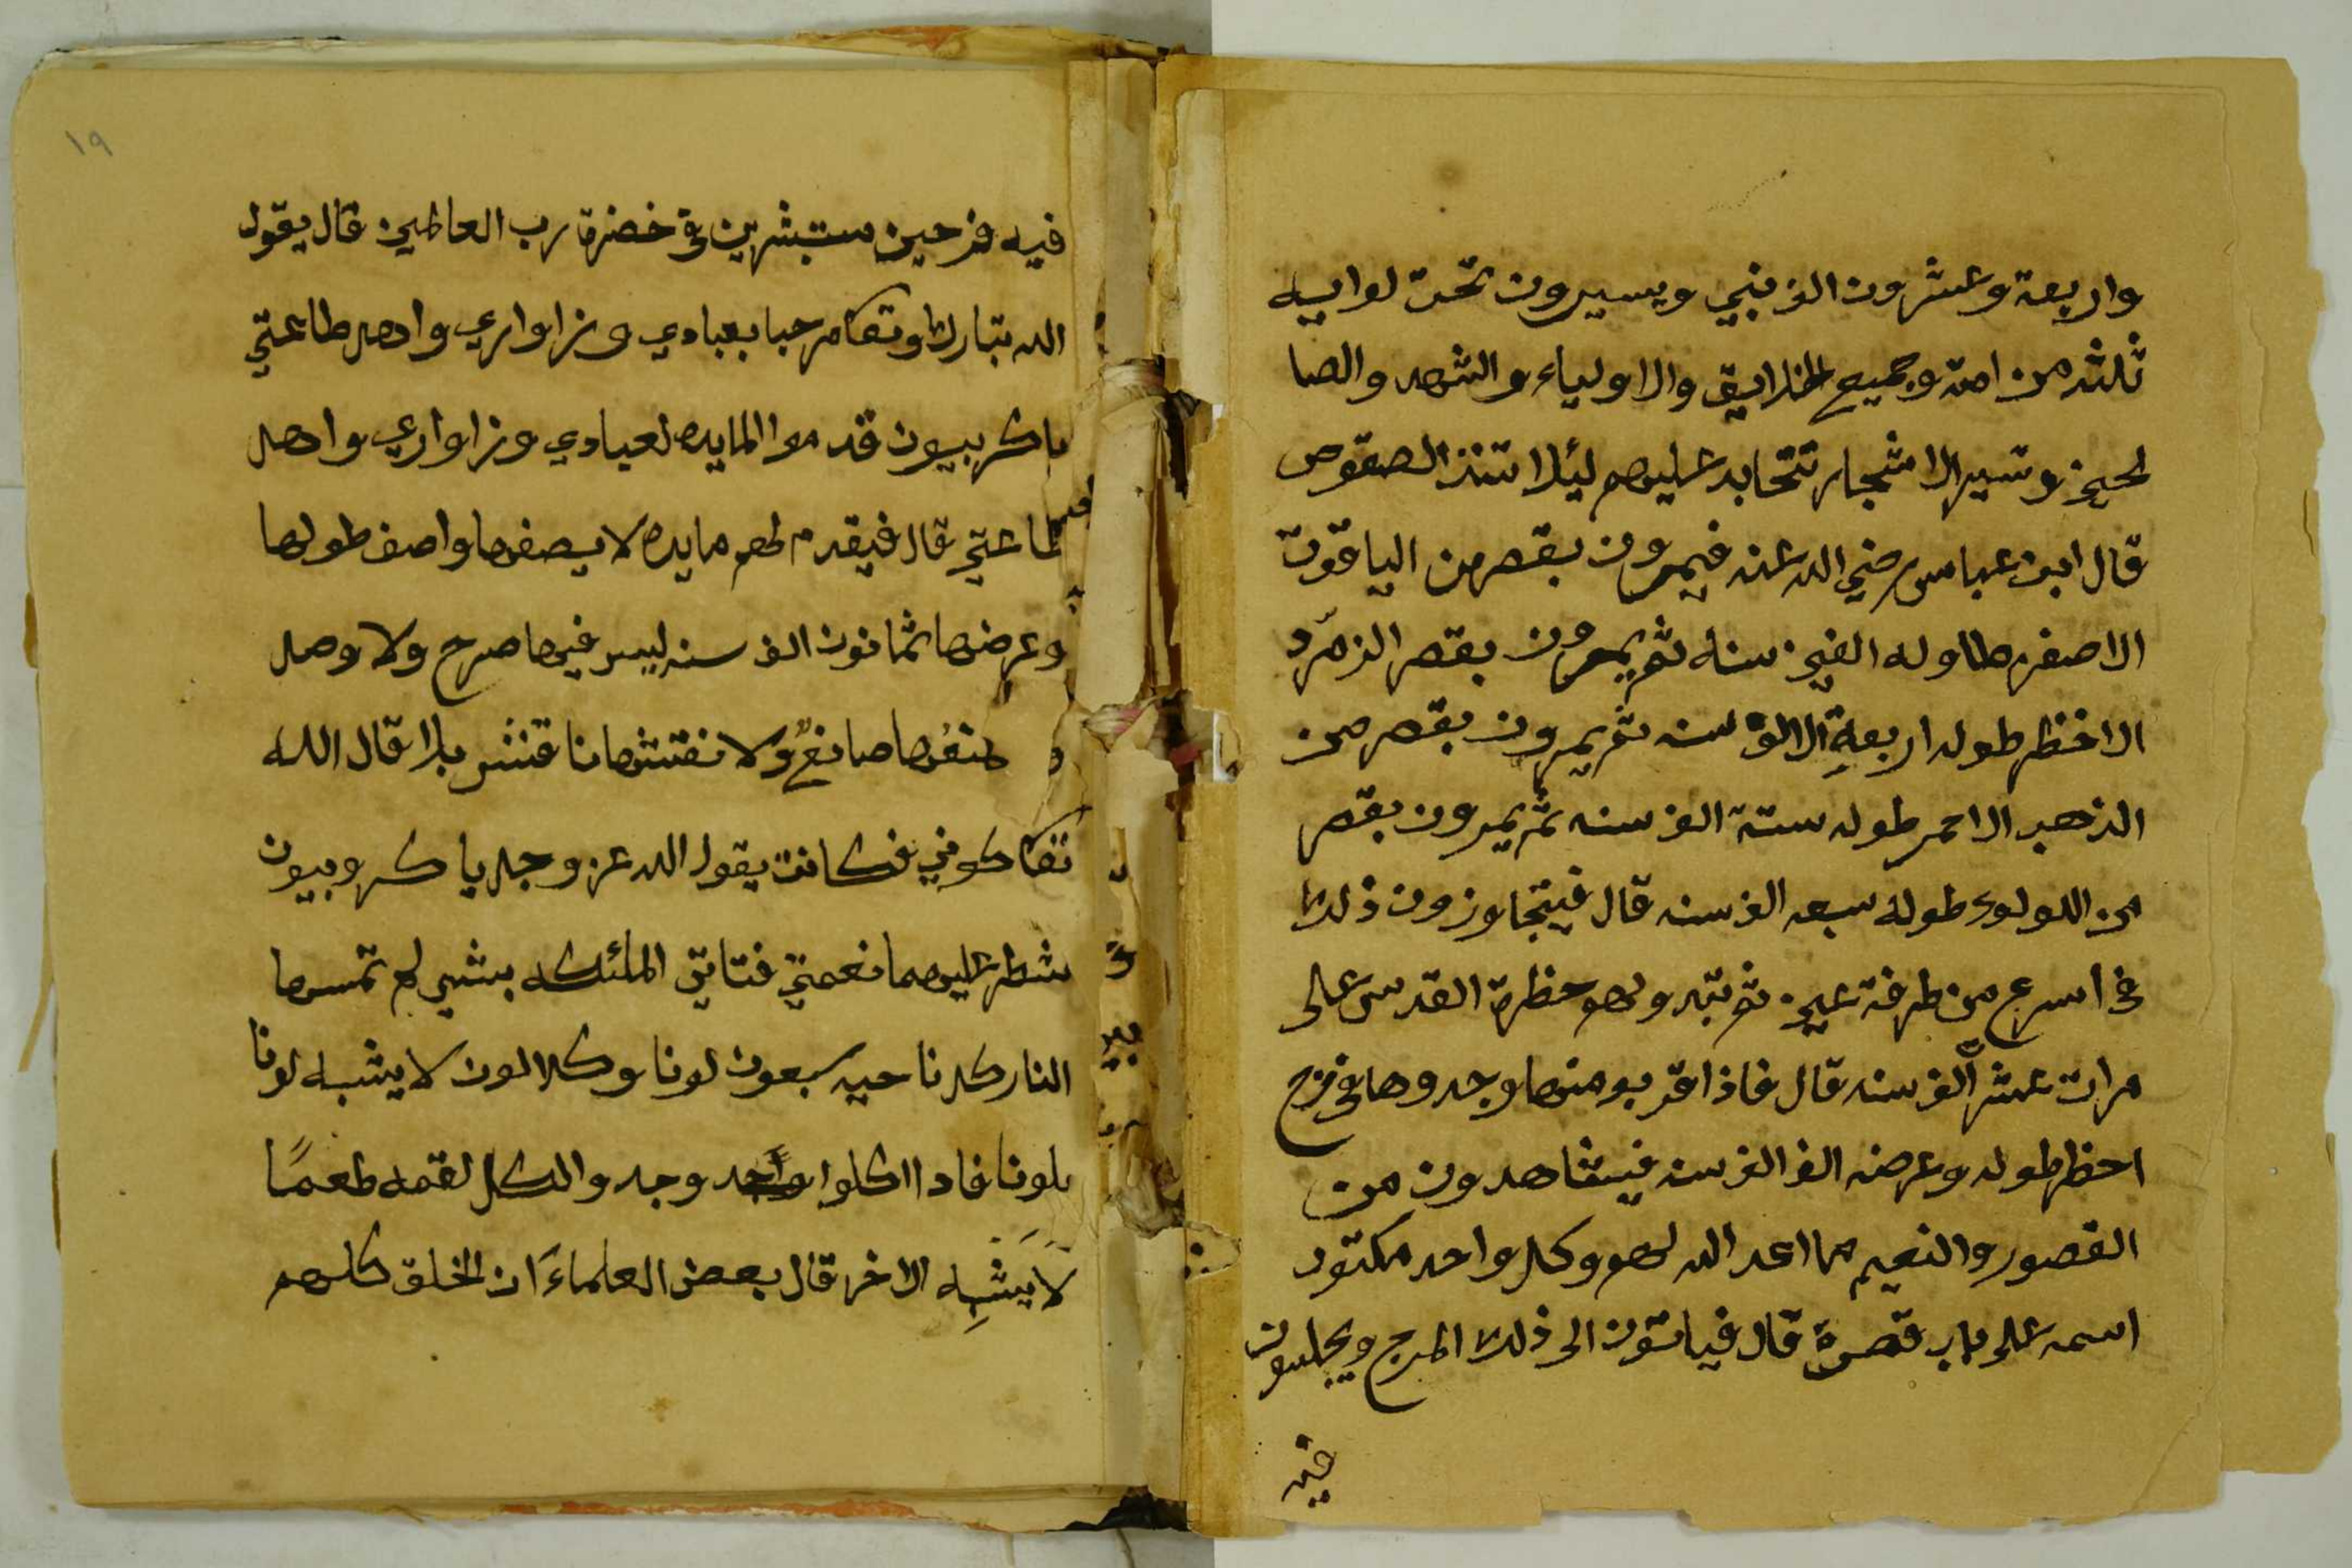 واربعة وعشرون الف نبي ويسيرون تحت لوايه
ثلثه من امته وجميع الخلايق والاولياء والشهد والصا
لحين وتسير الاشجار تتحايد عليهم ليئلا تنذ الصفوص
قال ابن عباس رضي الله عنه فيمرون بقصر من الياقوت
الاصفر طاوله الفين سنه ثم يمرون بقصر الزمرّد
الاخظر طوله اربعةِ الالوف سنه ثم يمرون بقصر من
الذهب الاحمر طوله ستة الف سنه ثم يمرون بقصر
من اللولوء طوله سبعه الف سنه قال فيتجاوزون ذلك
في اسرع من طرفة عين ثم تبدو لهم حظرة القدس على
مرات عشر ألف سنه قال فاذا قربو منها وجدوها في مرج
احظر طوله وعرضه الف الف سنه فيشاهدون من
القصور والنعيم مما اعد الله لهم وكل واحد مكتوب
اسمه على باب قصرة قال فياتون الى ذلك المرج ويجلسون
فيه
١٩
فيه فرحين مستبشرين في خضرة رب العالمين قال يقول
الله تبارك وتعا مرحبا بعبادي وزاواري واهل طاعتي
ياكربيون قدموا المايده لعبادي وزاواري واهل
طاعتي قال فيقدم لهم مايده لا يصفها واصف طولها
وعرضها ثمانون الف سنه ليس فيها صرح ولا وصل
صانعٌ ولا نقتشها ناقتش بلا قال الله
تعا كوني فكانت يقول الله عز وجل يا كروبيون
شطر عليهما نعمتي فتاتي الملئكه بشي لم تمسها
النار كل ناحيه سبعون لونا وكلا لون لا يشبه لونا
بلونا فاداا كلوا واحد وجدوا لكل لقمه طعمًا
لَا يَشبِه الاخر قال بعض العلماءَ ان الخلق كلهم